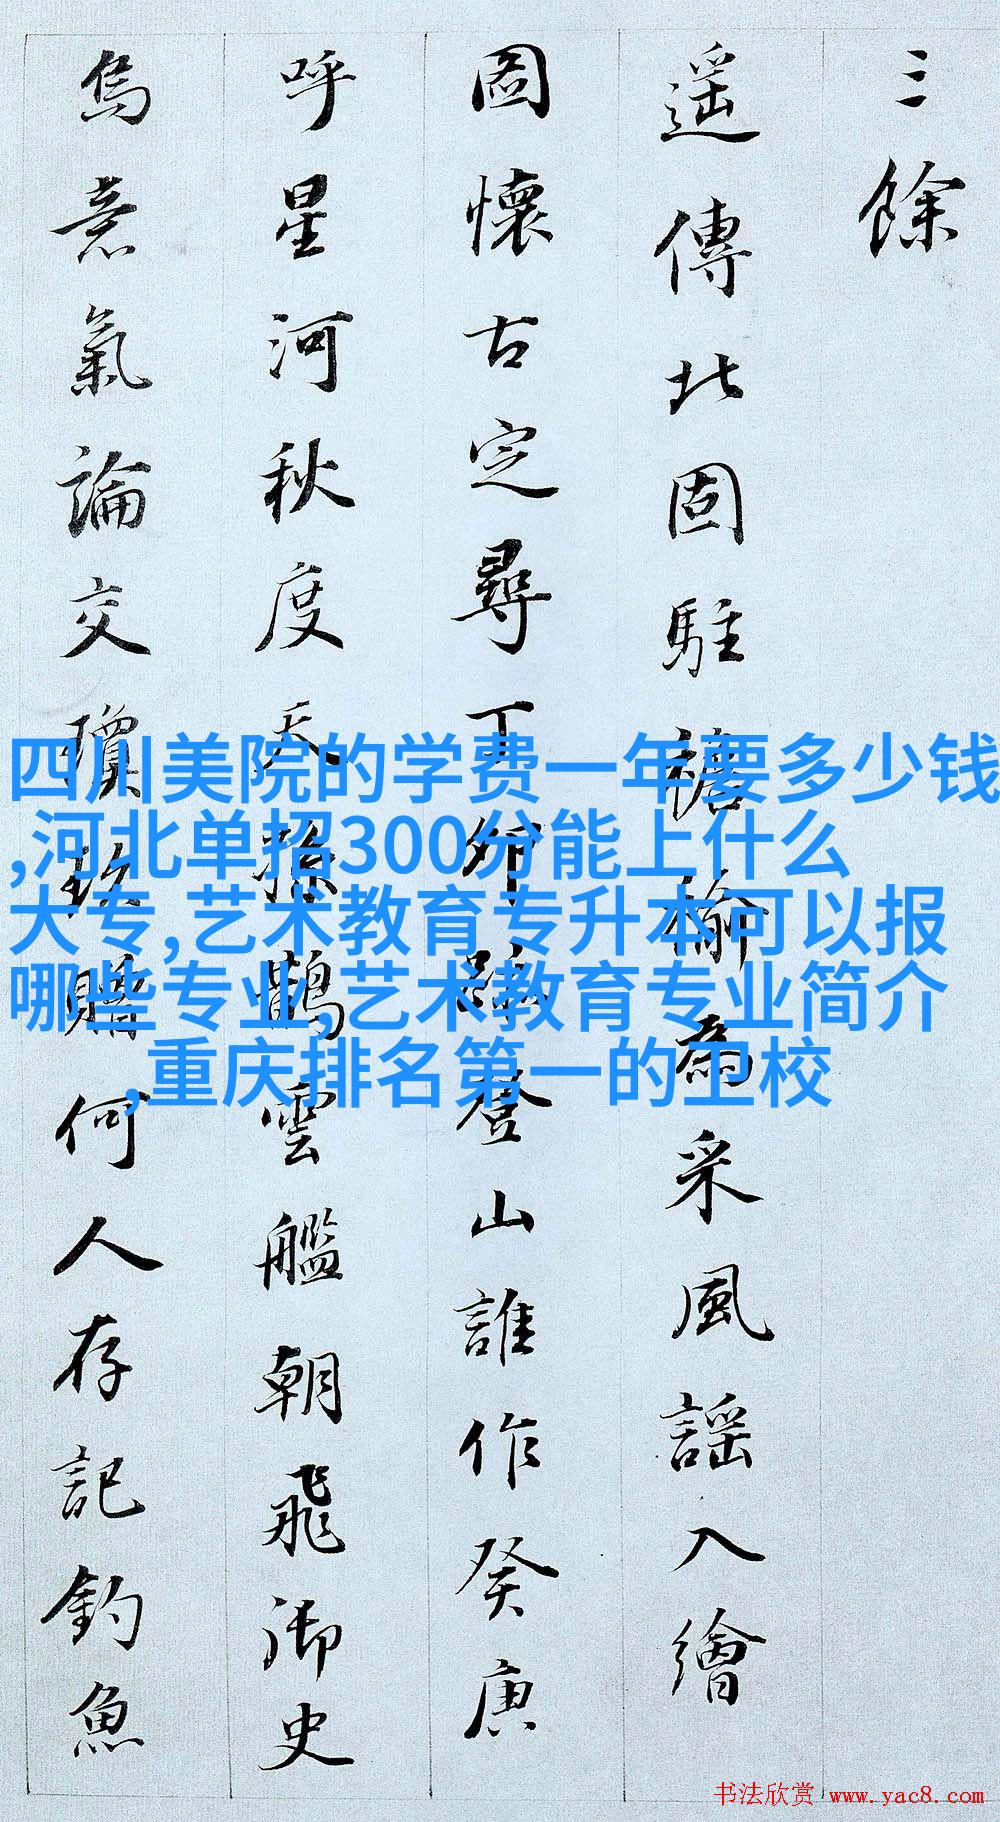 三餘
遥傳北固駐襜褕為采風謡入繪
圖懷古定尋丁卯跡登山誰作癸庚
呼星河秋度天孫鵲雲艦朝飛御史
烏意氣論交瓊玖贈何人存記釣魚
四川美院的学费一年要多少钱
,河北单招300分能上什么
大专,艺术教育专升本可以报
哪些专业,艺术教育专业简介
,重庆排名第一的卫校
书法欣赏 www.yac8.com